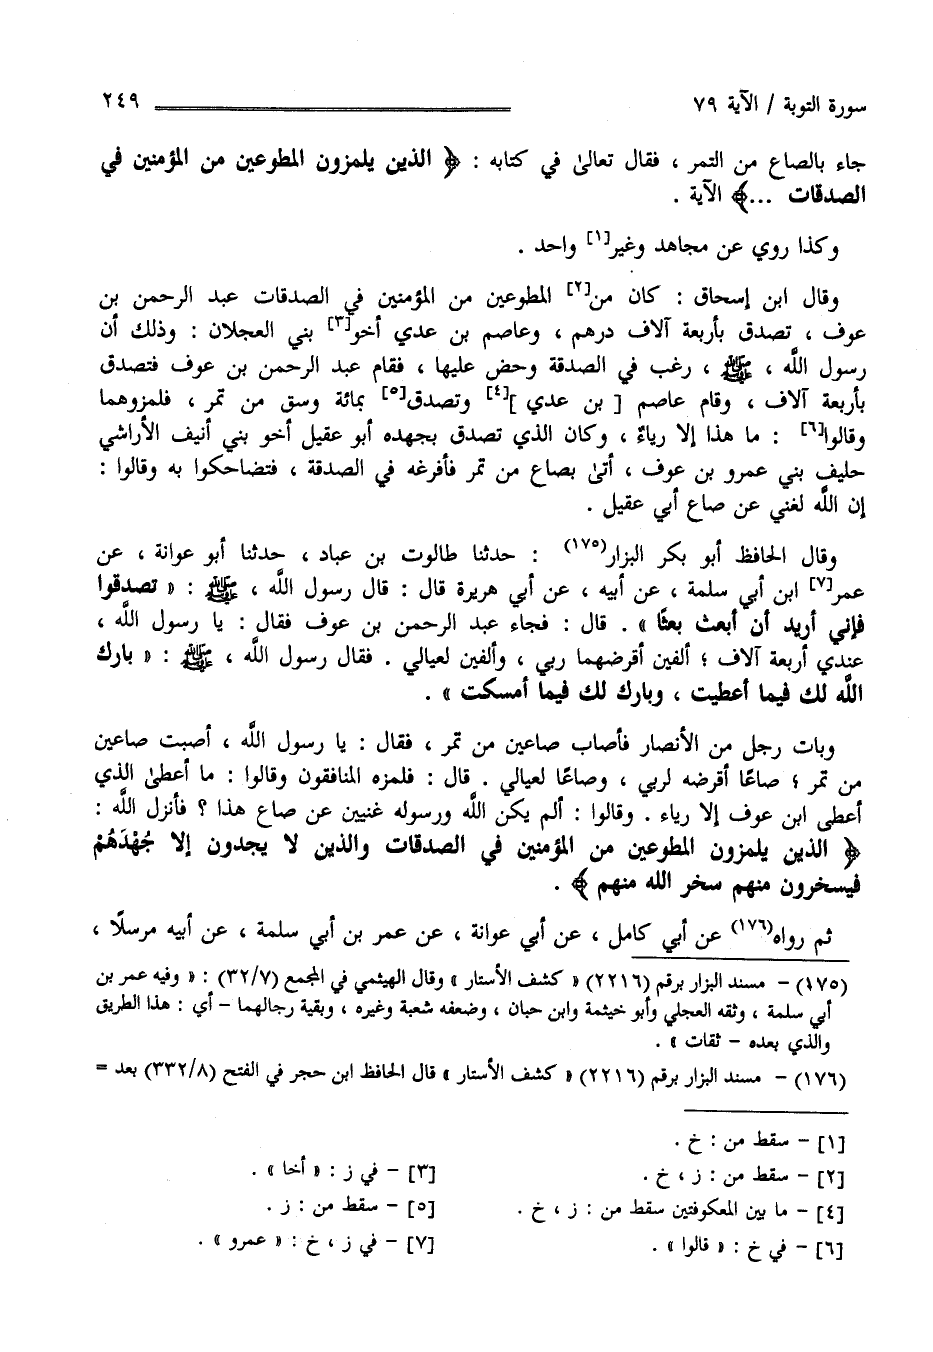 سورة التوبة / الآية ٧٩ ٢٤٩
جاء بالصاع من التمر ، فقال تعالىٰ في كتابه : ﴿ الذين يلمزون المطوعين من المؤمنين في
الصدقات ...﴾ الآية .
وكذا روي عن مجاهد وغير[١] واحد .
وقال ابن إسحاق : كان من[٢] المطوعين من المؤمنين في الصدقات عبد الرحمن بن
عوف ، تصدق بأربعة آلاف درهم ، وعاصم بن عدي أخو[٣] بني العجلان : وذلك أن
رسول اللَّه ، ﷺ ، رغب في الصدقة وحض عليها ، فقام عبد الرحمن بن عوف فتصدق
بأربعة آلاف ، وقام عاصم [ بن عدي ][٤] وتصدق[٥] بمائة وسق من تمر ، فلمزوهما
وقالوا[٦] : ما هذا إلا رياءٌ ، وكان الذي تصدق بجهده أبو عقيل أخو بني أنيف الأراشي
حليف بني عمرو بن عوف ، أتىٰ بصاع من تمر فأفرغه في الصدقة ، فتضاحكوا به وقالوا :
إن اللَّه لغني عن صاع أبي عقيل .
وقال الحافظ أبو بكر البزار(١٧٥) : حدثنا طالوت بن عباد ، حدثنا أبو عوانة ، عن
عمر[٧] ابن أبي سلمة ، عن أبيه ، عن أبي هريرة قال : قال رسول اللَّه ، ﷺ : « تصدقوا
فإني أريد أن أبعث بعثًا » . قال : فجاء عبد الرحمن بن عوف فقال : يا رسول اللَّه ،
عندي أربعة آلاف ؛ ألفين أقرضهما ربي ، وألفين لعيالي . فقال رسول اللَّه ، ﷺ : « بارك
اللَّه لك فيما أعطيت ، وبارك لك فيما أمسكت » .
وبات رجل من الأنصار فأصاب صاعين من تمر ، فقال : يا رسول اللَّه ، أصبت صاعين
من تمر ؛ صاعًا أقرضه لربي ، وصاعًا لعيالي . قال : فلمزه المنافقون وقالوا : ما أعطىٰ الذي
أعطى ابن عوف إلا رياء . وقالوا : ألم يكن اللَّه ورسوله غنيين عن صاع هذا ؟ فأنزل اللَّه :
﴿ الذين يلمزون المطوعين من المؤمنين في الصدقات والذين لا يجدون إلا جُهْدَهُمْ
فيسخرون منهم سخر الله منهم ﴾ .
ثم رواه(١٧٦) عن أبي كامل ، عن أبي عوانة ، عن عمر بن أبي سلمة ، عن أبيه مرسلًا ،
(١٧٥) – مسند البزار برقم (٢٢١٦) « كشف الأستار » وقال الهيثمي في المجمع (٣٢/٧) : « وفيه عمر بن
أبي سلمة ، وثقه العجلي وأبو خيثمة وابن حبان ، وضعفه شعبة وغيره ، وبقية رجالهما – أي : هذا الطريق
والذي بعده – ثقات » .
(١٧٦) – مسند البزار برقم (٢٢١٦) « كشف الأستار » قال الحافظ ابن حجر في الفتح (٣٣٢/٨) بعد =
[١] – سقط من : خ .
[٢] – سقط من : ز ، خ . [٣] – في ز : « أخا » .
[٤] – ما بين المعكوفتين سقط من : ز ، خ . [٥] – سقط من : ز .
[٦] – في خ : « قالوا » . [٧] – في ز ، خ : « عمرو » .